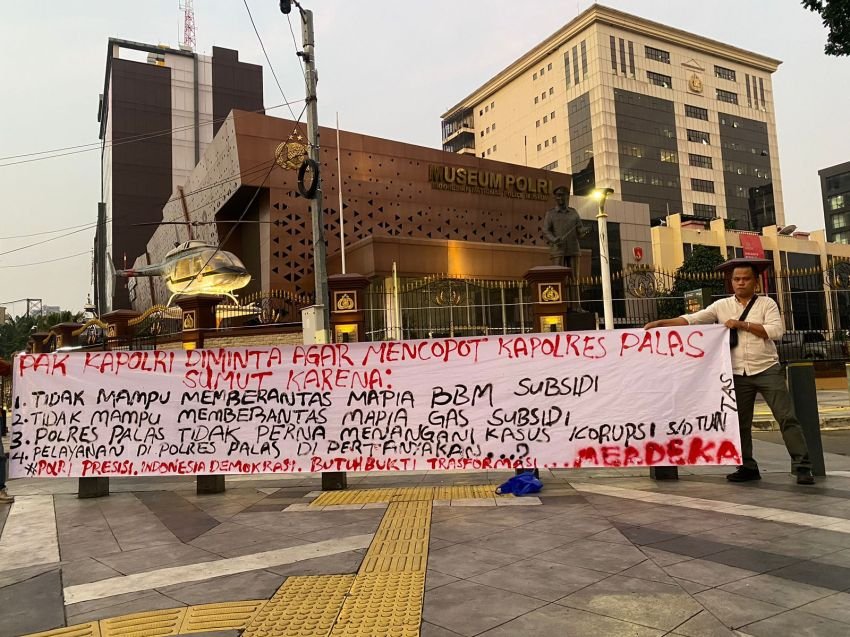 MUSEUM POLRI
INDONESIAN NATIONAL POLICE MUSEUM
PAK KAPOLRI DIMINTA AGAR MENCOPOT KAPOLRES PALAS
SUMUT KARENA:
1. TIDAK MAMPU MEMBERANTAS MAPIA BBM SUBSIDI
2. TIDAK MAMPU MEMBERANTAS MAPIA GAS SUBSIDI
3. POLRES PALAS TIDAK PERNA MENANGANI KASUS KORUPSI S/D TUN
TAS
4. PELAYANAN DI POLRES PALAS DI PERTANYAKAN...?
*POLRI PRESISI. INDONESIA DEMOKRASI. BUTUH BUKTI TRASFORMASI... MERDEKA